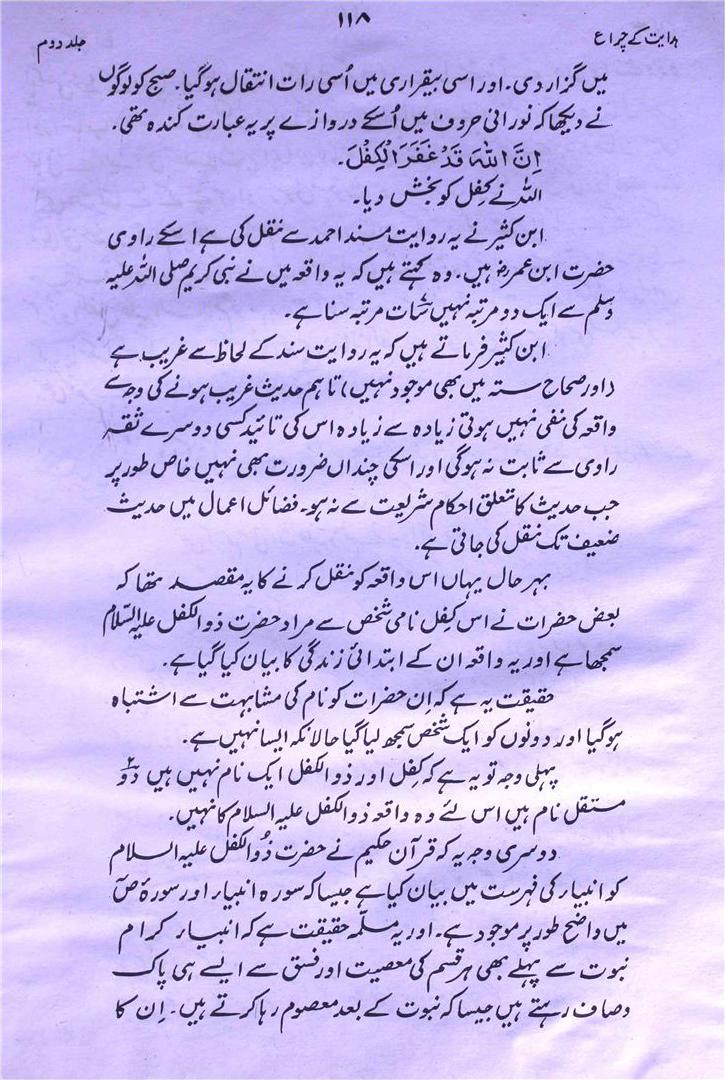 ہدایت کے چراغ
۱۱۸
جلد دوم
میں گزار دی۔ اور اسی بیقراری میں اُسی رات انتقال ہو گیا۔ صبح کو لوگوں
نے دیکھا کہ نورانی حروف میں اُسکے دروازے پر یہ عبارت کندہ تھی۔
اِنَّ اللهَ قَدْ غَفَرَ الْکِفْلَ۔
اللہ نے کِفل کو بخش دیا۔
ابن کثیر نے یہ روایت مسند احمد سے نقل کی ہے اسکے راوی
حضرت ابن عمرؓ ہیں۔ وہ کہتے ہیں کہ یہ واقعہ میں نے نبی کریم صلی اللہ علیہ
وسلم سے ایک دو مرتبہ نہیں سات مرتبہ سنا ہے۔
ابن کثیر فرماتے ہیں کہ یہ روایت سند کے لحاظ سے غریب ہے
(اور صحاح ستہ میں بھی موجود نہیں) تاہم حدیث غریب ہونے کی وجہ سے
واقعہ کی نفی نہیں ہوتی زیادہ سے زیادہ اس کی تائید کسی دوسرے ثقہ
راوی سے ثابت نہ ہوگی اور اسکی چنداں ضرورت بھی نہیں خاص طور پر
جب حدیث کا تعلق احکام شریعت سے نہ ہو۔ فضائل اعمال میں حدیث
ضعیف تک نقل کی جاتی ہے۔
بہر حال یہاں اس واقعہ کو نقل کرنے کا یہ مقصد تھا کہ
بعض حضرات نے اس کِفل نامی شخص سے مراد حضرت ذوالکفل علیہ السّلام
سمجھا ہے اور یہ واقعہ ان کے ابتدائی زندگی کا بیان کیا گیا ہے۔
حقیقت یہ ہے کہ اِن حضرات کو نام کی مشابہت سے اشتباہ
ہو گیا اور دونوں کو ایک شخص سمجھ لیا گیا حالانکہ ایسا نہیں ہے۔
پہلی وجہ تو یہ ہے کہ کِفل اور ذوالکفل ایک نام نہیں ہیں دو۲
مستقل نام ہیں اس لئے وہ واقعہ ذوالکفل علیہ السلام کا نہیں۔
دوسری وجہ یہ کہ قرآن حکیم نے حضرت ذُوالکفل علیہ السلام
کو انبیار کی فہرست میں بیان کیا ہے جیسا کہ سورہ انبیار اور سورۂ صٓ
میں واضح طور پر موجود ہے۔ اور یہ مسلّمہ حقیقت ہے کہ انبیار کرام
نبوت سے پہلے بھی ہر قسم کی معصیت اور فسق سے ایسے ہی پاک
وصاف رہتے ہیں جیسا کہ نبوت کے بعد معصوم رہا کرتے ہیں۔ اِن کا